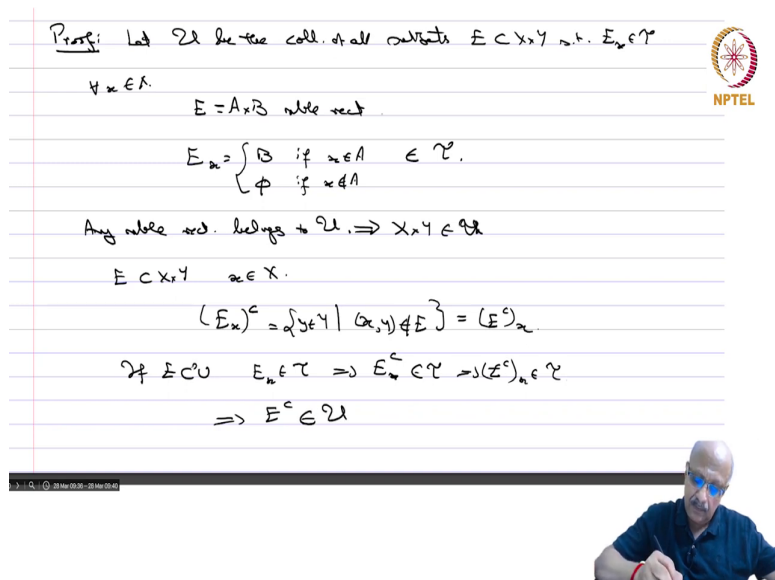 Proof: Let 𝒰 be the coll. of all subsets E ⊂ X×Y s.t. Eₓ ∈ 𝒯
NPTEL
∀ x ∈ X.
E = A×B mble rect.
Eₓ = { B if x ∈ A ∈ 𝒯.
φ if x ∉ A
Any mble rect. belongs to 𝒰. ⇒ X×Y ∈ 𝒰
E ⊂ X×Y x ∈ X.
(Eₓ)ᶜ = {y ∈ Y | (x,y) ∉ E} = (Eᶜ)ₓ.
If E ⊂ 𝒰 Eₓ ∈ 𝒯 ⇒ Eₓᶜ ∈ 𝒯 ⇒ (Eᶜ)ₓ ∈ 𝒯
⇒ Eᶜ ∈ 𝒰
28 Mar 09:36 - 28 Mar 09:40